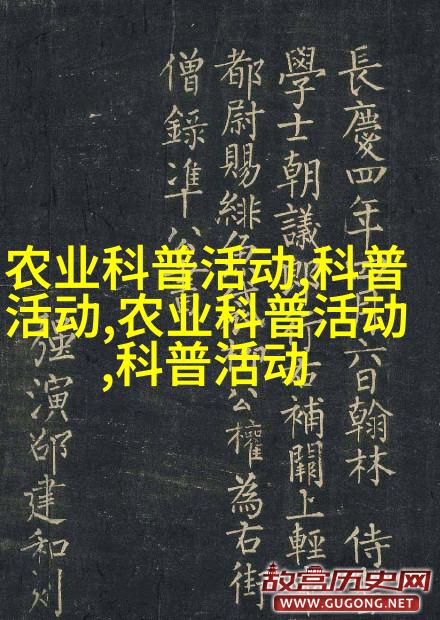 農业科普活动,科普
活动,农业科普活动
,科普活动
長慶四年六日翰林侍
學士朝議右補闕上輕
都尉賜緋公權為右街
僧錄准公
強演邵建和刻
故宫历史网
WWW.GUGONG.NET